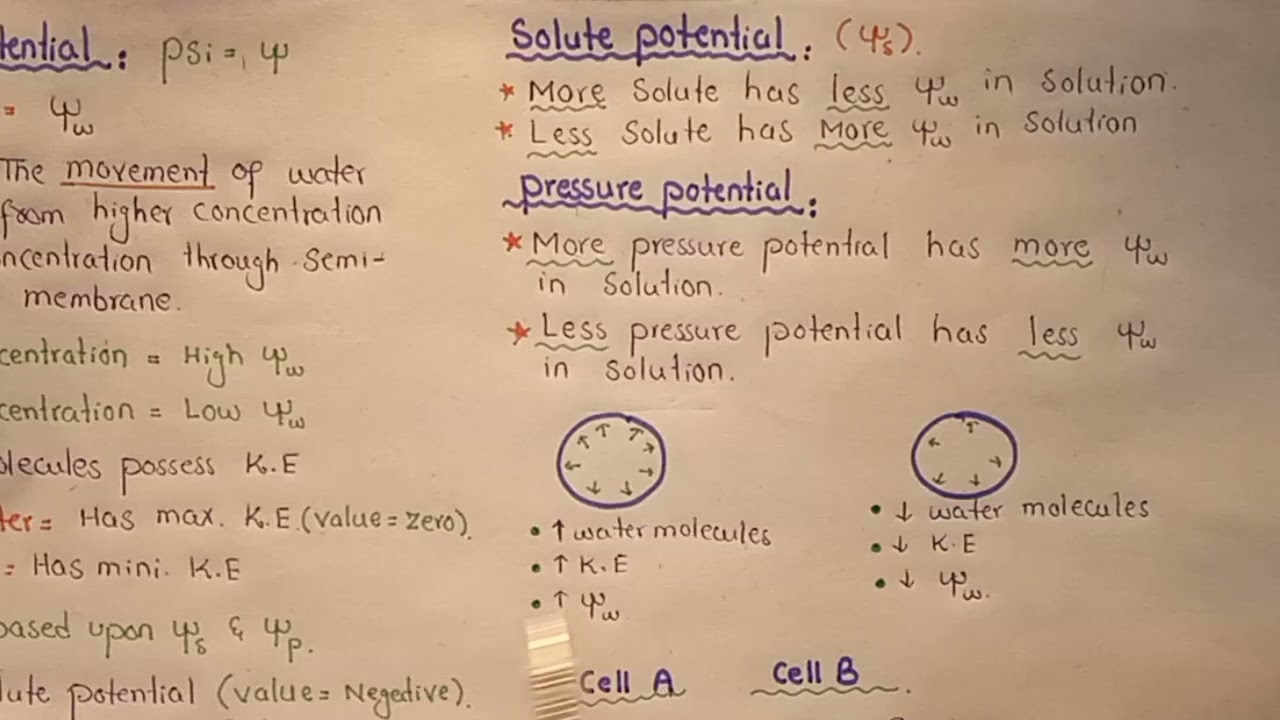 tential: psi =, ψ
= ψw
The movement of water
from higher concentration
ncentration through semi-
membrane.
centration = High ψw
centration = Low ψw
olecules possess K.E
ter = Has max. K.E (value = zero).
= Has mini. K.E
based upon ψs & ψp.
lute potential (value = Negative).
Solute potential: (ψs).
* More Solute has less ψw in solution.
* Less Solute has More ψw in solution
pressure potential:
* More pressure potential has more ψw
in solution.
* Less pressure potential has less ψw
in solution.
• ↑ water molecules
• ↑ K.E
• ↑ ψw
• ↓ water molecules
• ↓ K.E
• ↓ ψw.
Cell A
Cell B.